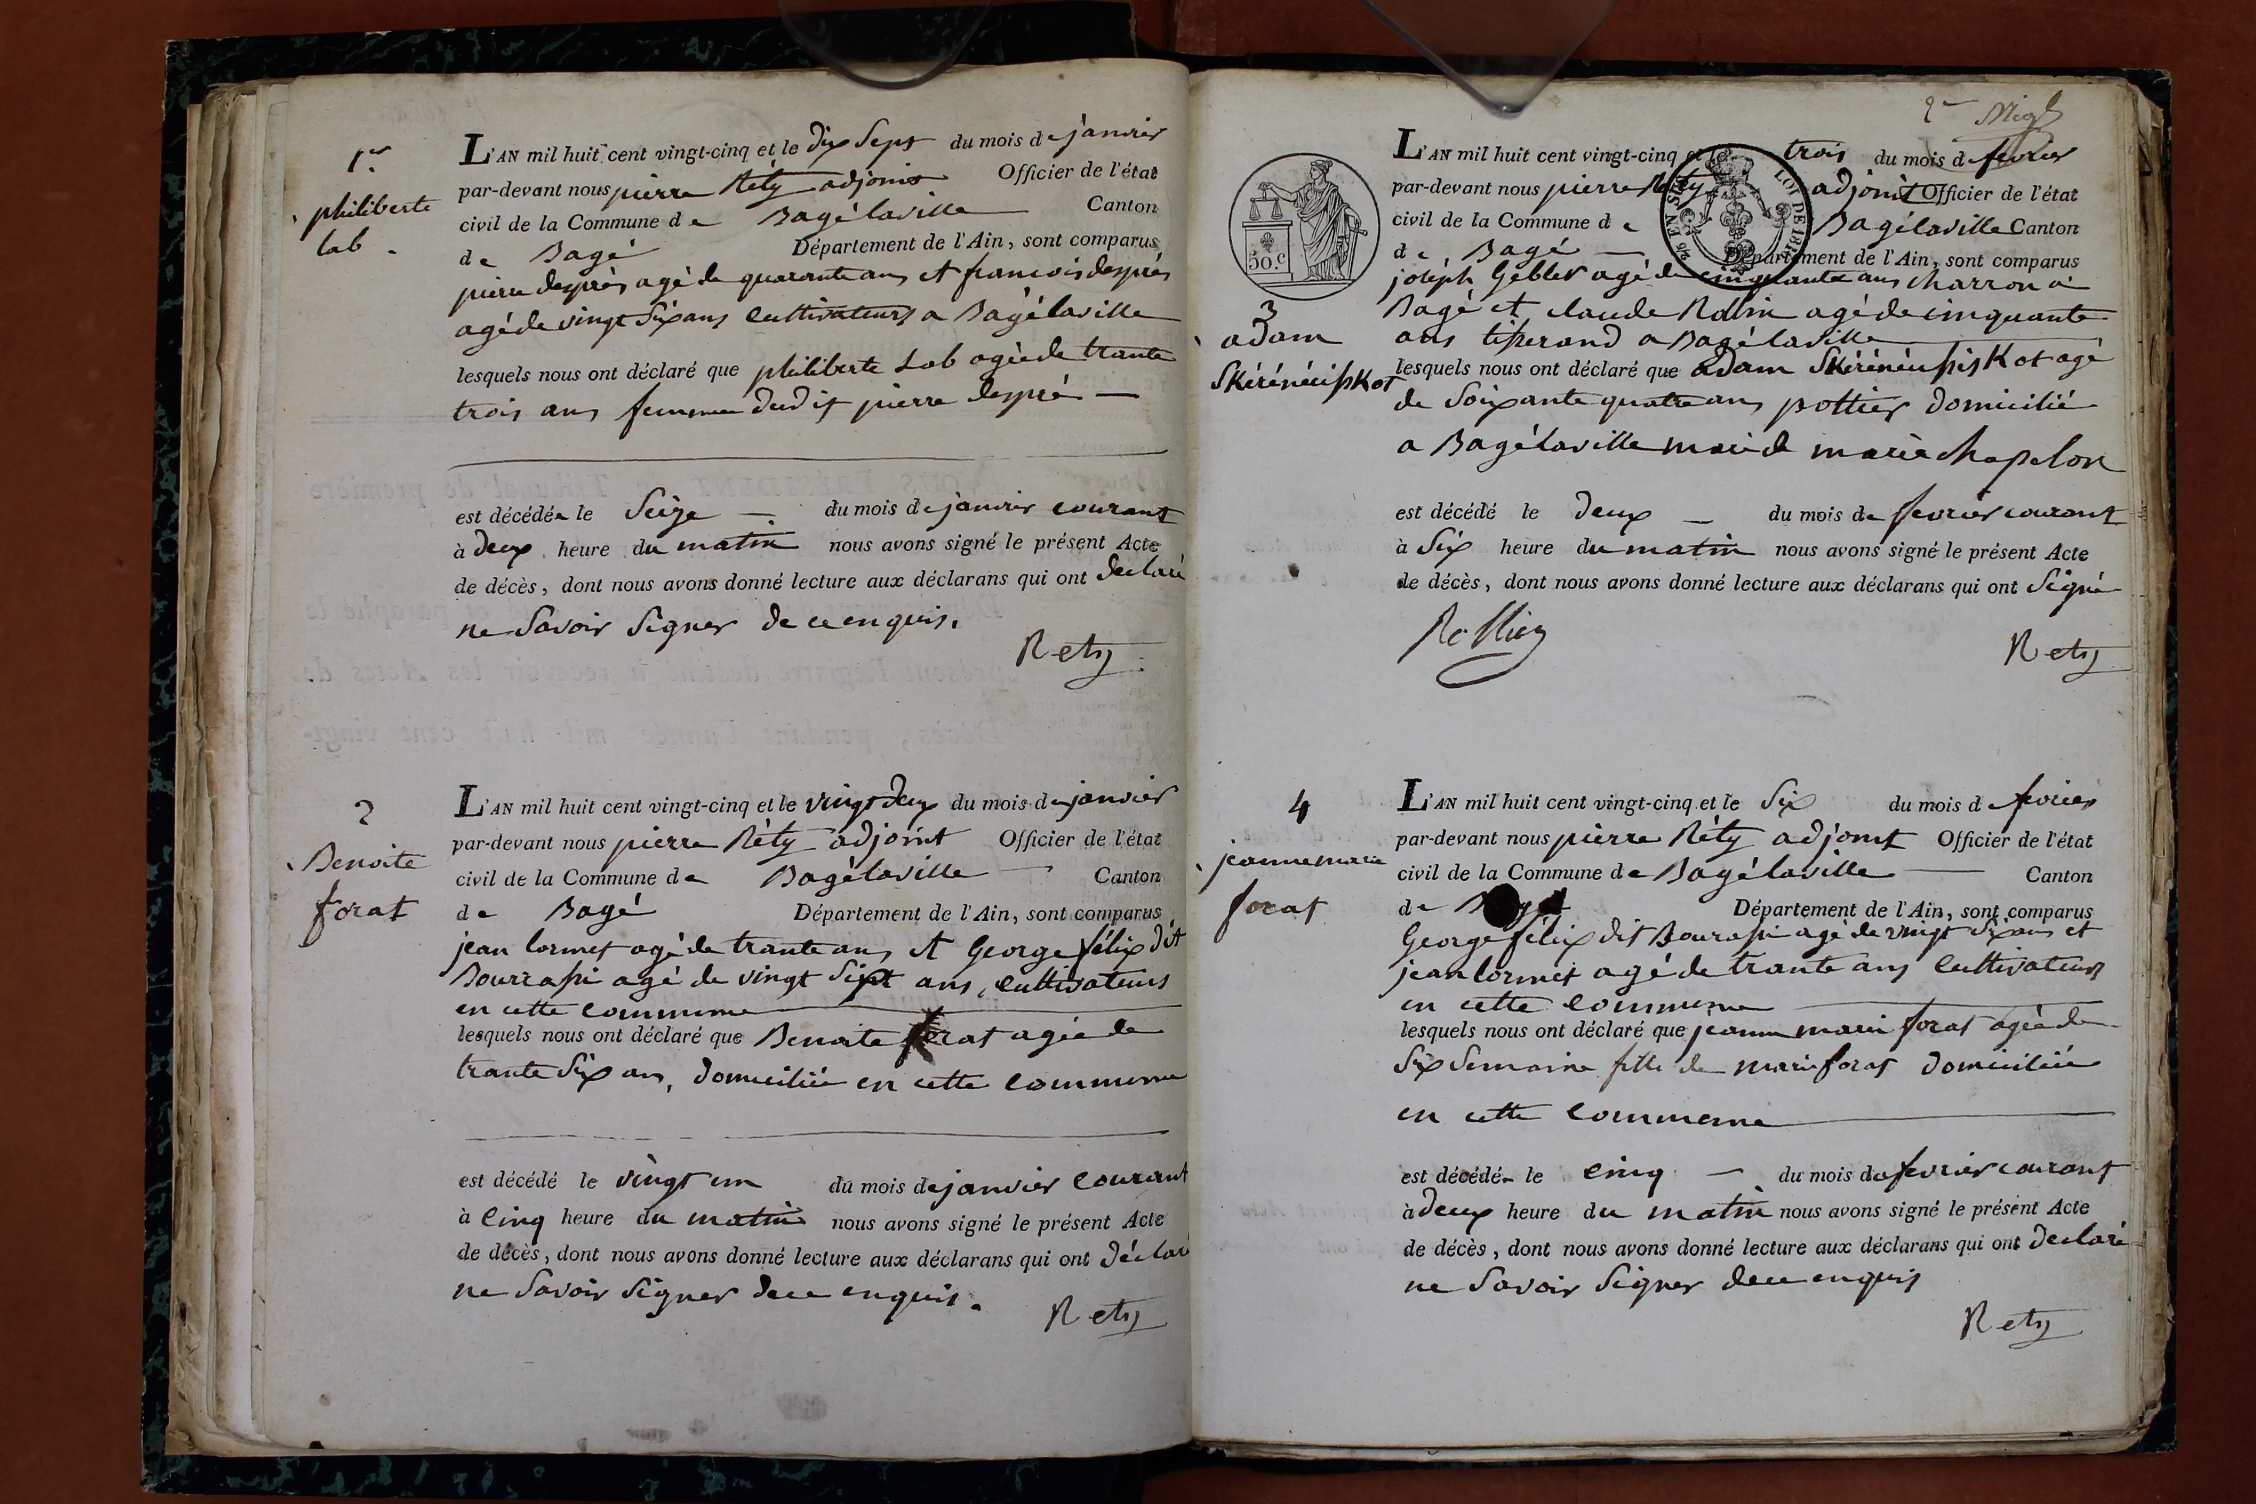 1.er
philiberte
Lab.
L'AN mil huit cent vingt-cinq et le dix Sept du mois de janvier
par-devant nous pierre Réty adjoint Officier de l'état
civil de la Commune de Bagélaville Canton
de Bagé Département de l'Ain, sont comparus
pierre desprès agé de quarante ans et francois desprès
agé de vingt Six ans Cultivateurs a Bagélaville
lesquels nous ont déclaré que philiberte Lab agée de trante
trois ans femme dudit pierre despré
est décédée le Seize du mois de janvier courant
à deux heure du matin nous avons signé le présent Acte
de décès, dont nous avons donné lecture aux déclarans qui ont declaré
ne Savoir Signer de ce enquis.
Rety
2
Benoite
forat
L'AN mil huit cent vingt-cinq et le vingt deux du mois de janvier
par-devant nous pierre Réty adjoint Officier de l'état
civil de la Commune de Bagélaville Canton
de Bagé Département de l'Ain, sont comparus
jean lormet agé de trante ans et George félix dit
Bourrassi agé de vingt Sept ans, Cultivateurs
en cette commune
lesquels nous ont déclaré que Benoite forat agée de
trante Six ans, domiciliée en cette commune
est décédé le vingt un du mois de janvier courant
à Cinq heure du matin nous avons signé le présent Acte
de décès, dont nous avons donné lecture aux déclarans qui ont déclaré
ne Savoir Signer de ce enquis.
Rety
2me
50.c
LOI DE 1816
3
adam
L'AN mil huit cent vingt-cinq et le trois du mois de fevrier
par-devant nous pierre Réty adjoint Officier de l'état
civil de la Commune de Bagélaville Canton
de Bagé Département de l'Ain, sont comparus
joséph Gebler agé de cinquante ans charron a
Bagé et claude Rollin agé de cinquante
ans tisserand a Bagélaville
lesquels nous ont déclaré que adam agé
de Soixante quatre ans pottier domicilié
a Bagélaville mari de marie chapelon
est décédé le deux du mois de fevrier courant
à Six heure du matin nous avons signé le présent Acte
de décès, dont nous avons donné lecture aux déclarans qui ont Signé
Rety
4
jeanne marie
forat
L'AN mil huit cent vingt-cinq et le Six du mois de fevrier
par-devant nous pierre Réty adjoint Officier de l'état
civil de la Commune de Bagélaville Canton
de Bagé Département de l'Ain, sont comparus
George félix dit Bourassi agé de vingt Six ans et
jean lormet agé de trante ans Cultivateurs
en cette commune
lesquels nous ont déclaré que jeanne marie forat agée de
Six Semaine fille de marie forat domiciliée
en cette commune
est décédée le Cinq du mois de fevrier courant
à deux heure du matin nous avons signé le présent Acte
de décès, dont nous avons donné lecture aux déclarans qui ont declaré
ne Savoir Signer de ce enquis
Rety